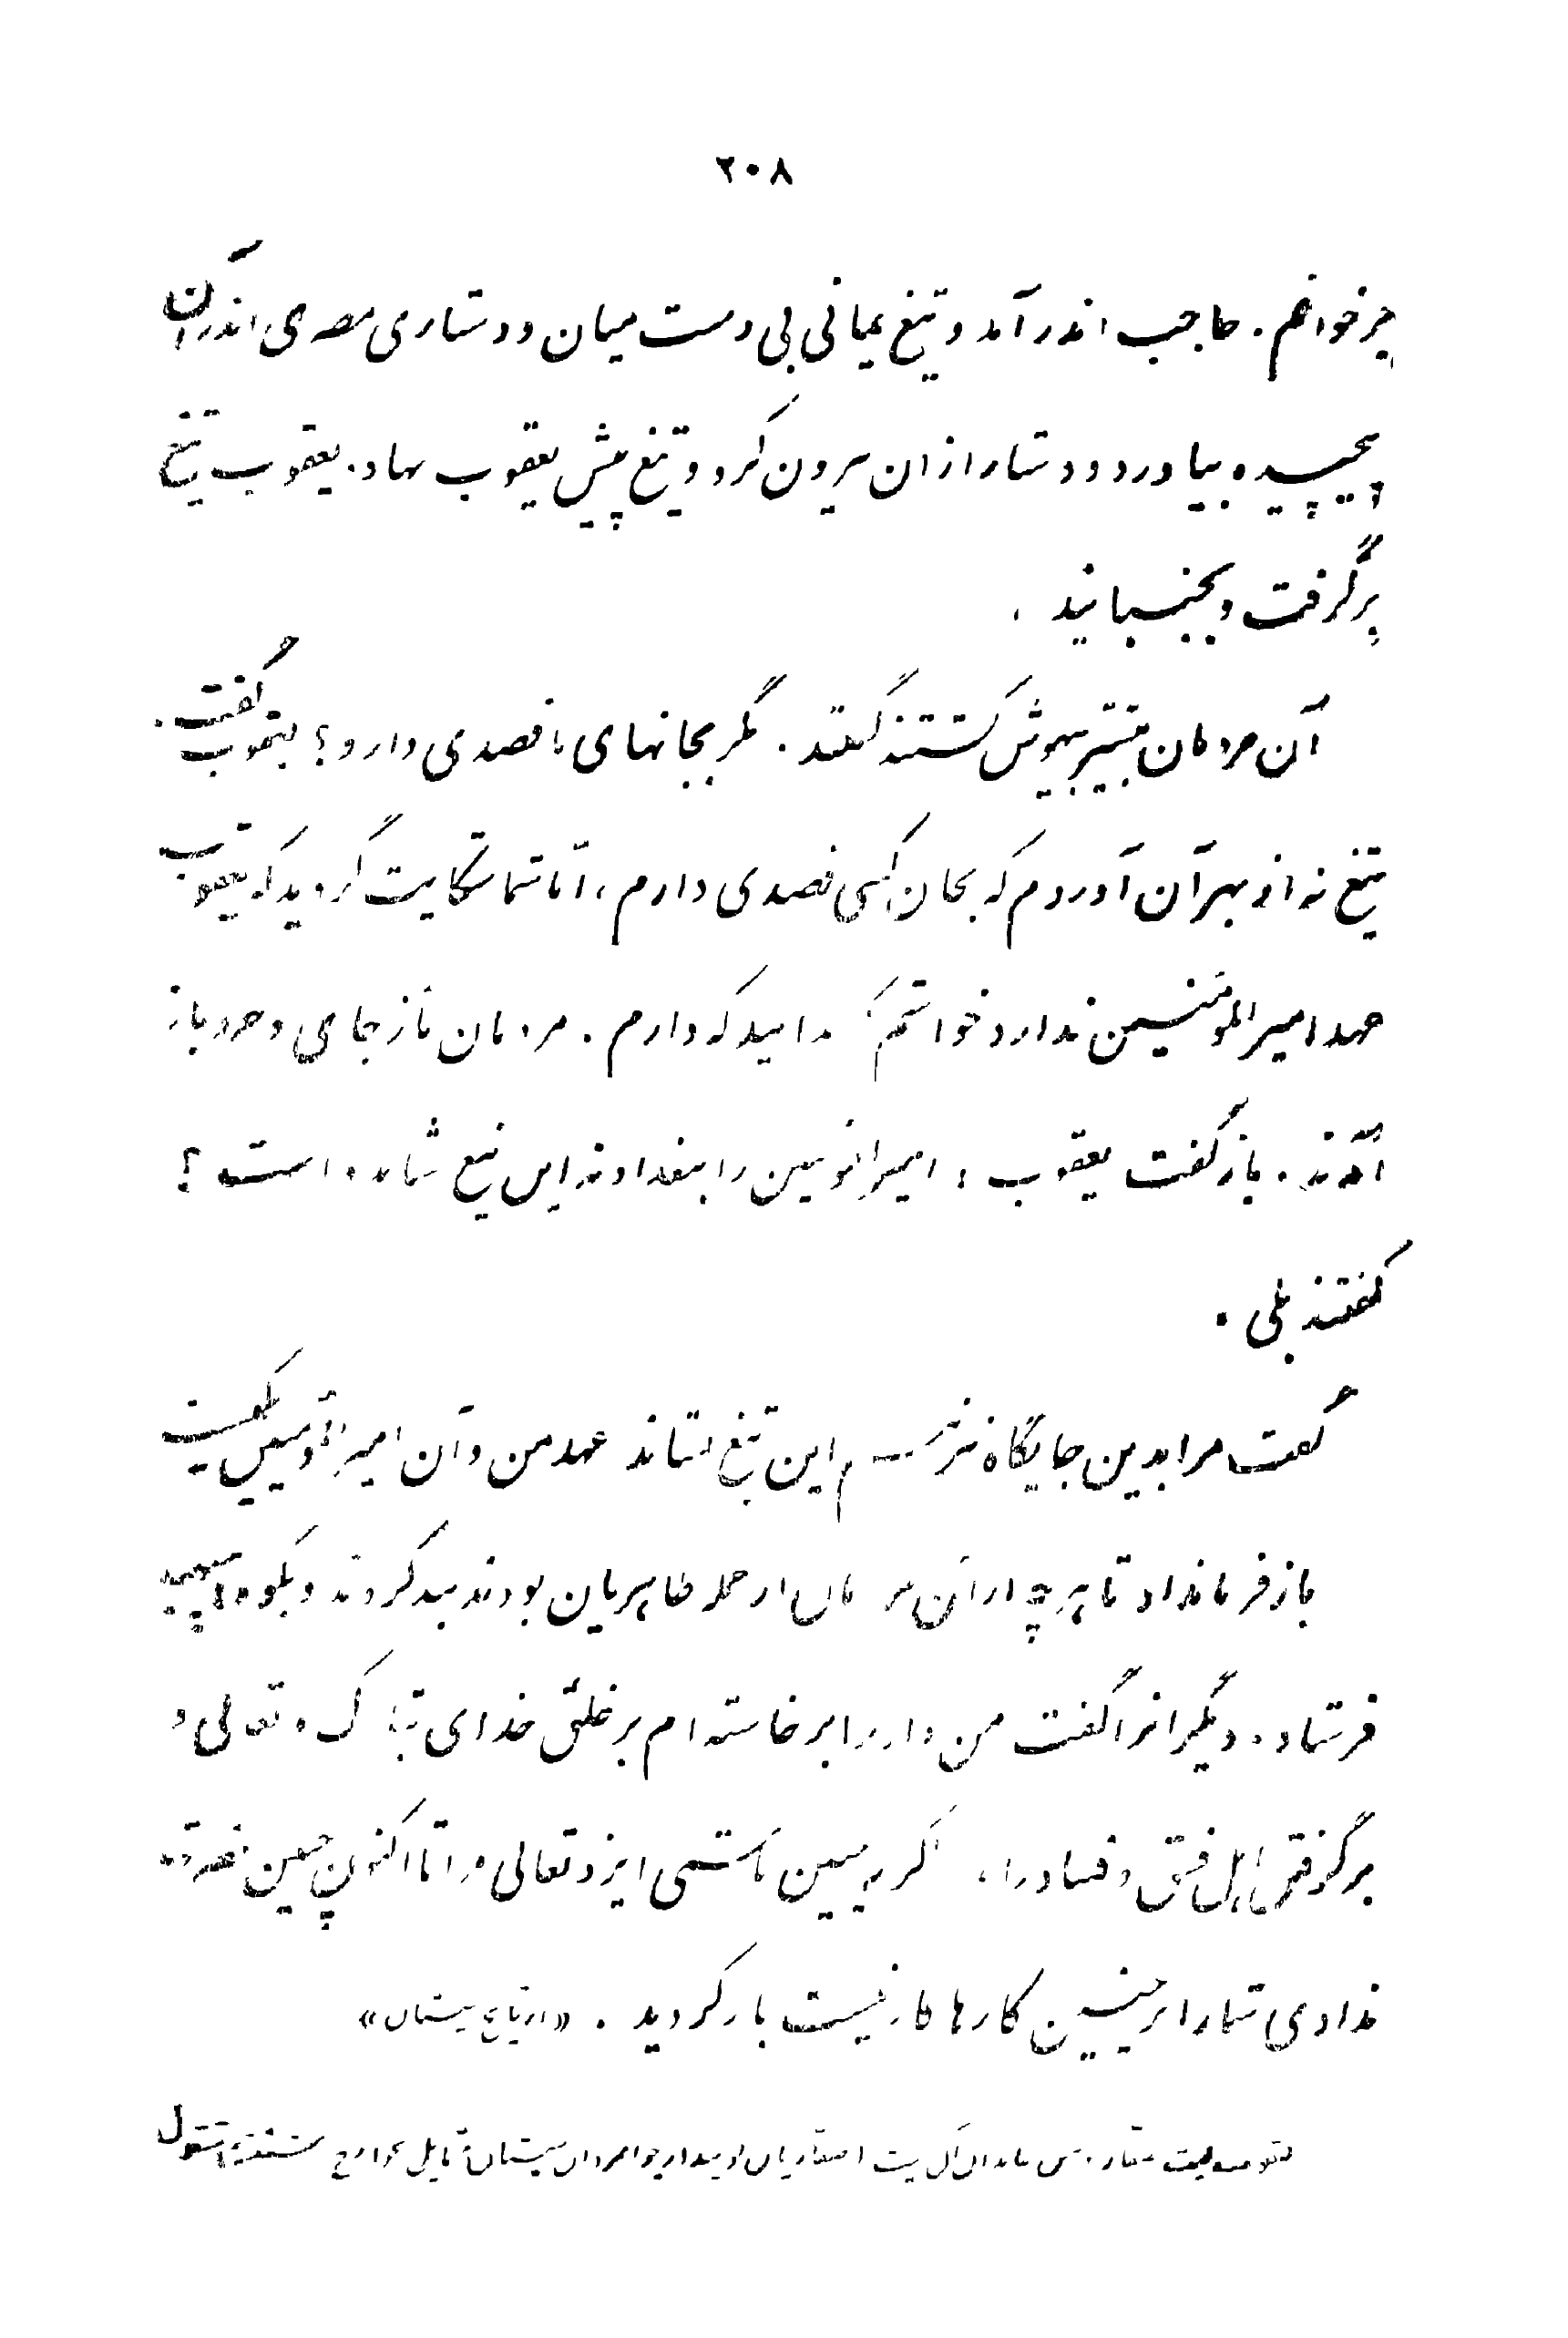 ۲۰۸
بر خوانم. حاجب اندر آمد و تیغ یمانی بی دست میان و دستاری مصری اندر آن
پیچیده بیاورد و دستار از آن بیرون کرد و تیغ پیش یعقوب نهاد. یعقوب تیغ
برگرفت و بجنبانید.
آن مردمان بیشتر بیهوش گشتند گفتند. مگر بجانهای ما قصدی دارد؟ یعقوب گفت.
تیغ نه از بهر آن آوردم که بجان کسی قصدی دارم، اما شما شکایت کردید که یعقوب
عهد امیرالمؤمنین ندارد خواستم که بدانید که دارم. مردمان باز جای و خرد باز
آمدند. باز گفت یعقوب: امیرالمؤمنین را ببغداد نه این تیغ نشانده است؟
گفتند بلی.
گفت مرا بدین جایگاه نیز هم این تیغ نشاند عهد من و آن امیرالمؤمنین یکیست
باز فرمان داد تا هر چه از آن مردمان از جمله طاهریان بودند بند کردند و بکوه اسپهبد
فرستاد. دیگرانرا گفت من داد را برخاسته ام بر خلق خدای تبارک و تعالی و
برگرفتن اهل فسق و فساد را، اگر نه چنین باشمی ایزد تعالی مرا تا اکنون چنین نصرت
ندادی شما را بر چنین کارها کار نیست باز گردید. «از تاریخ سیستان»
یعقوب لیث صفار